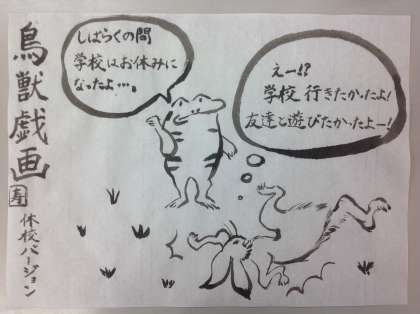 鳥獣戯画
休校バージョン
しばらくの間
学校はお休みに
なったよ…。
えー!?
学校 行きたかったよ!
友達と遊びたかったよー!